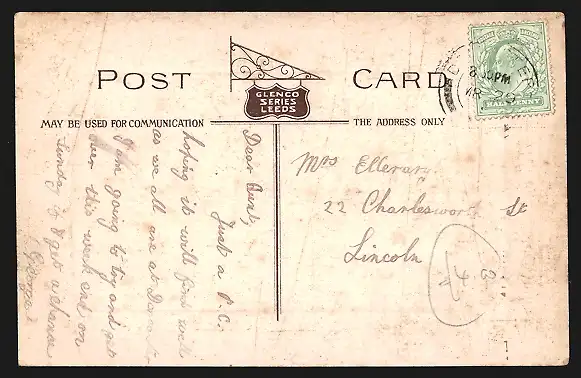 POST CARD
GLENCO
SERIES
LEEDS
MAY BE USED FOR COMMUNICATION
THE ADDRESS ONLY
8 30 PM
HALFPENNY
Dear Aunt,
Just a P.C.
hoping it will find well
as we all are at
I am going to try and get
over this week end on
Sunday if I get a chance
George
Mrs
22 Charlesworth St
Lincoln